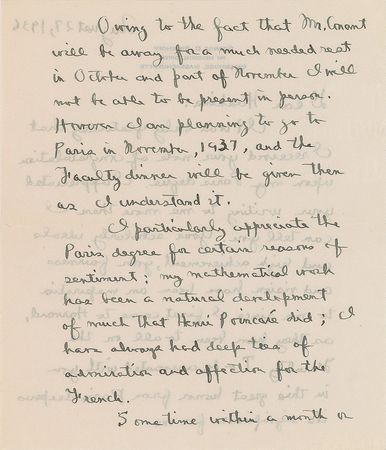 Owing to the fact that Mr. Conant
will be away for a much needed rest
in October and part of November I will
not be able to be present in person.
However I am planning to go to
Paris in November, 1937, and the
Faculty dinner will be given then
as I understand it.
I particularly appreciate the
Paris degree for certain reasons of
sentiment; my mathematical work
has been a natural development
of much that Henri Poincaré did; I
have always had deep ties of
admiration and affection for the
French.
Some time within a month or